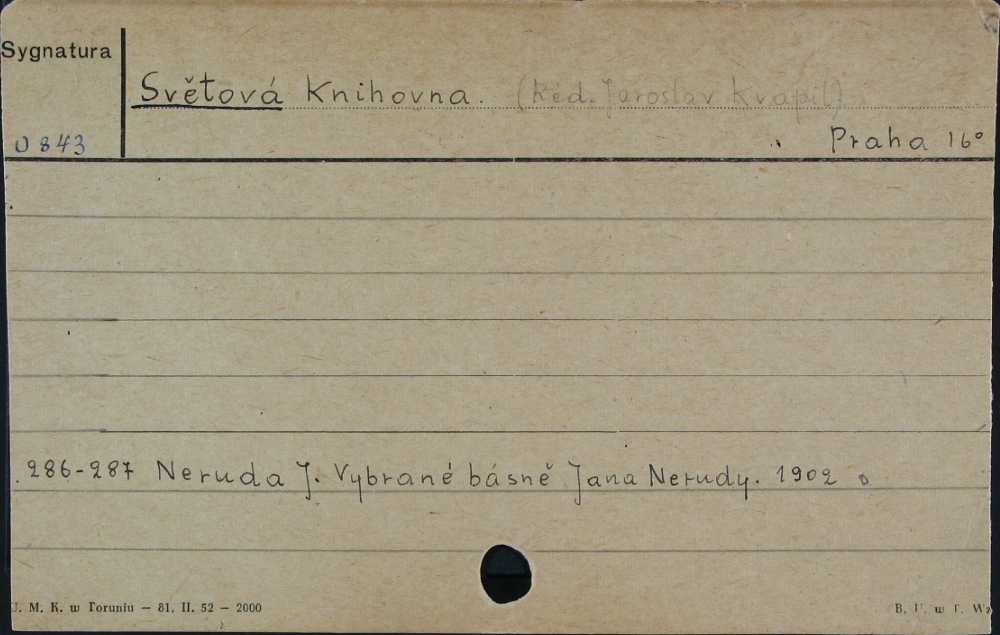 Sygnatura
Světová Knihovna. (Red. Jaroslav Kvapil)
U 843
Praha 16°
286-287 Neruda J. Vybrané básně Jana Nerudy. 1902
U. M. K. w Toruniu — 81. II. 52 — 2000
B. U. w T. Wz